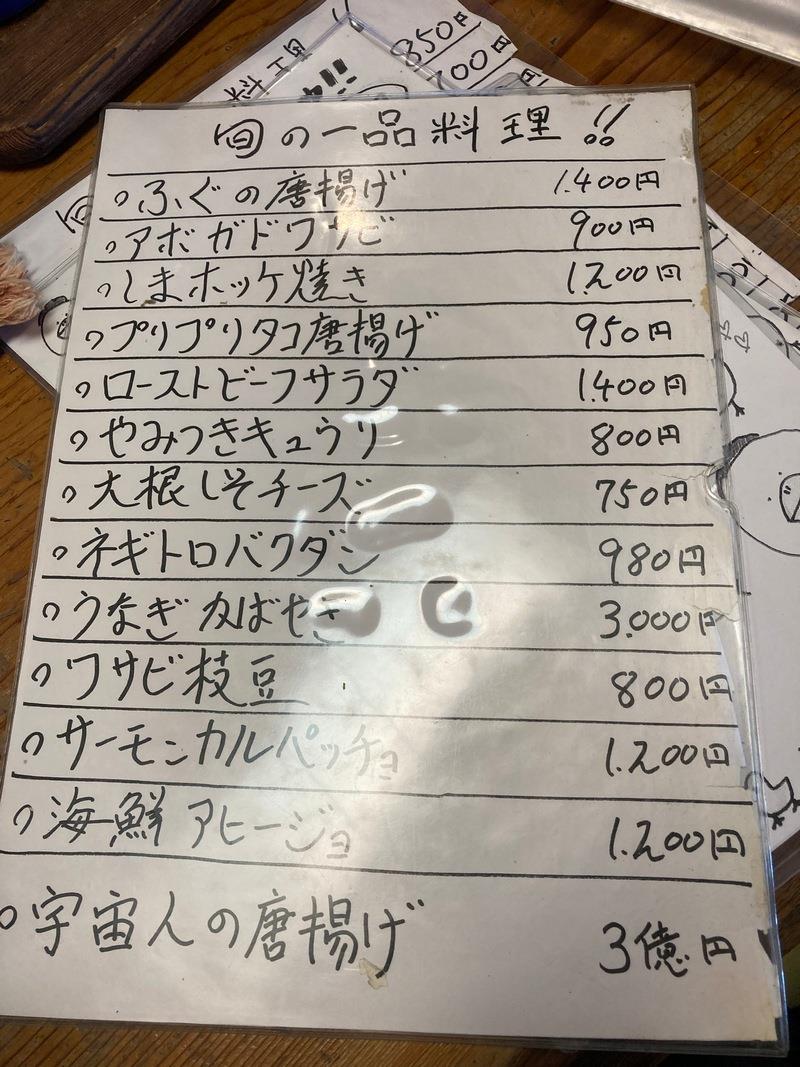 料理
350円
00円
旬
旬の一品料理!!
○ふぐの唐揚げ 1.400円
○アボガドワサビ 900円
○しまホッケ焼き 1.200円
○プリプリタコ唐揚げ 950円
○ローストビーフサラダ 1.400円
○やみつきキュウリ 800円
○大根しそチーズ 750円
○ネギトロバクダン 980円
○うなぎかばやき 3.000円
○ワサビ枝豆 800円
○サーモンカルパッチョ 1.200円
○海鮮アヒージョ 1.200円
○宇宙人の唐揚げ 3億円